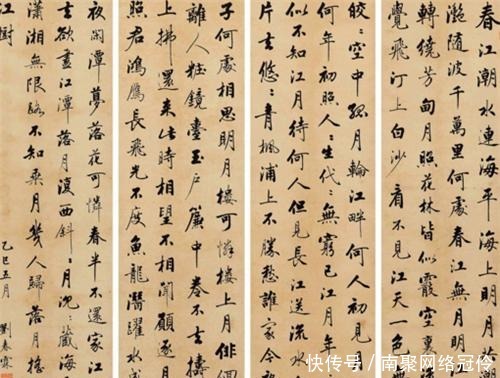 春江潮水連海平海上明月
灧隨波千萬里何處春江無
轉繞芳甸月照花林皆似霰空裏
覺飛汀上白沙看不見江天一色
皎〻空中孤月輪江畔何人初見
何年初照人〻生代〻無窮已江月
似不知江月待何人但見長江送流水
片去悠〻青楓浦上不勝愁誰家今
子何處相思明月樓可憐樓上月俳佪
離人粧鏡臺玉戶簾中卷不去擣
上拂還來此時相望不相聞願逐
照君鴻鴈長飛光不度魚龍潛躍水
夜閑潭夢落花可憐春半不還家江
去欲盡江潭落月復西斜〻月沈〻藏海
瀟湘無限路不知乘月幾人歸落月搖
江樹
乙巳五月 劉春霖
快传号/南聚网络冠伶